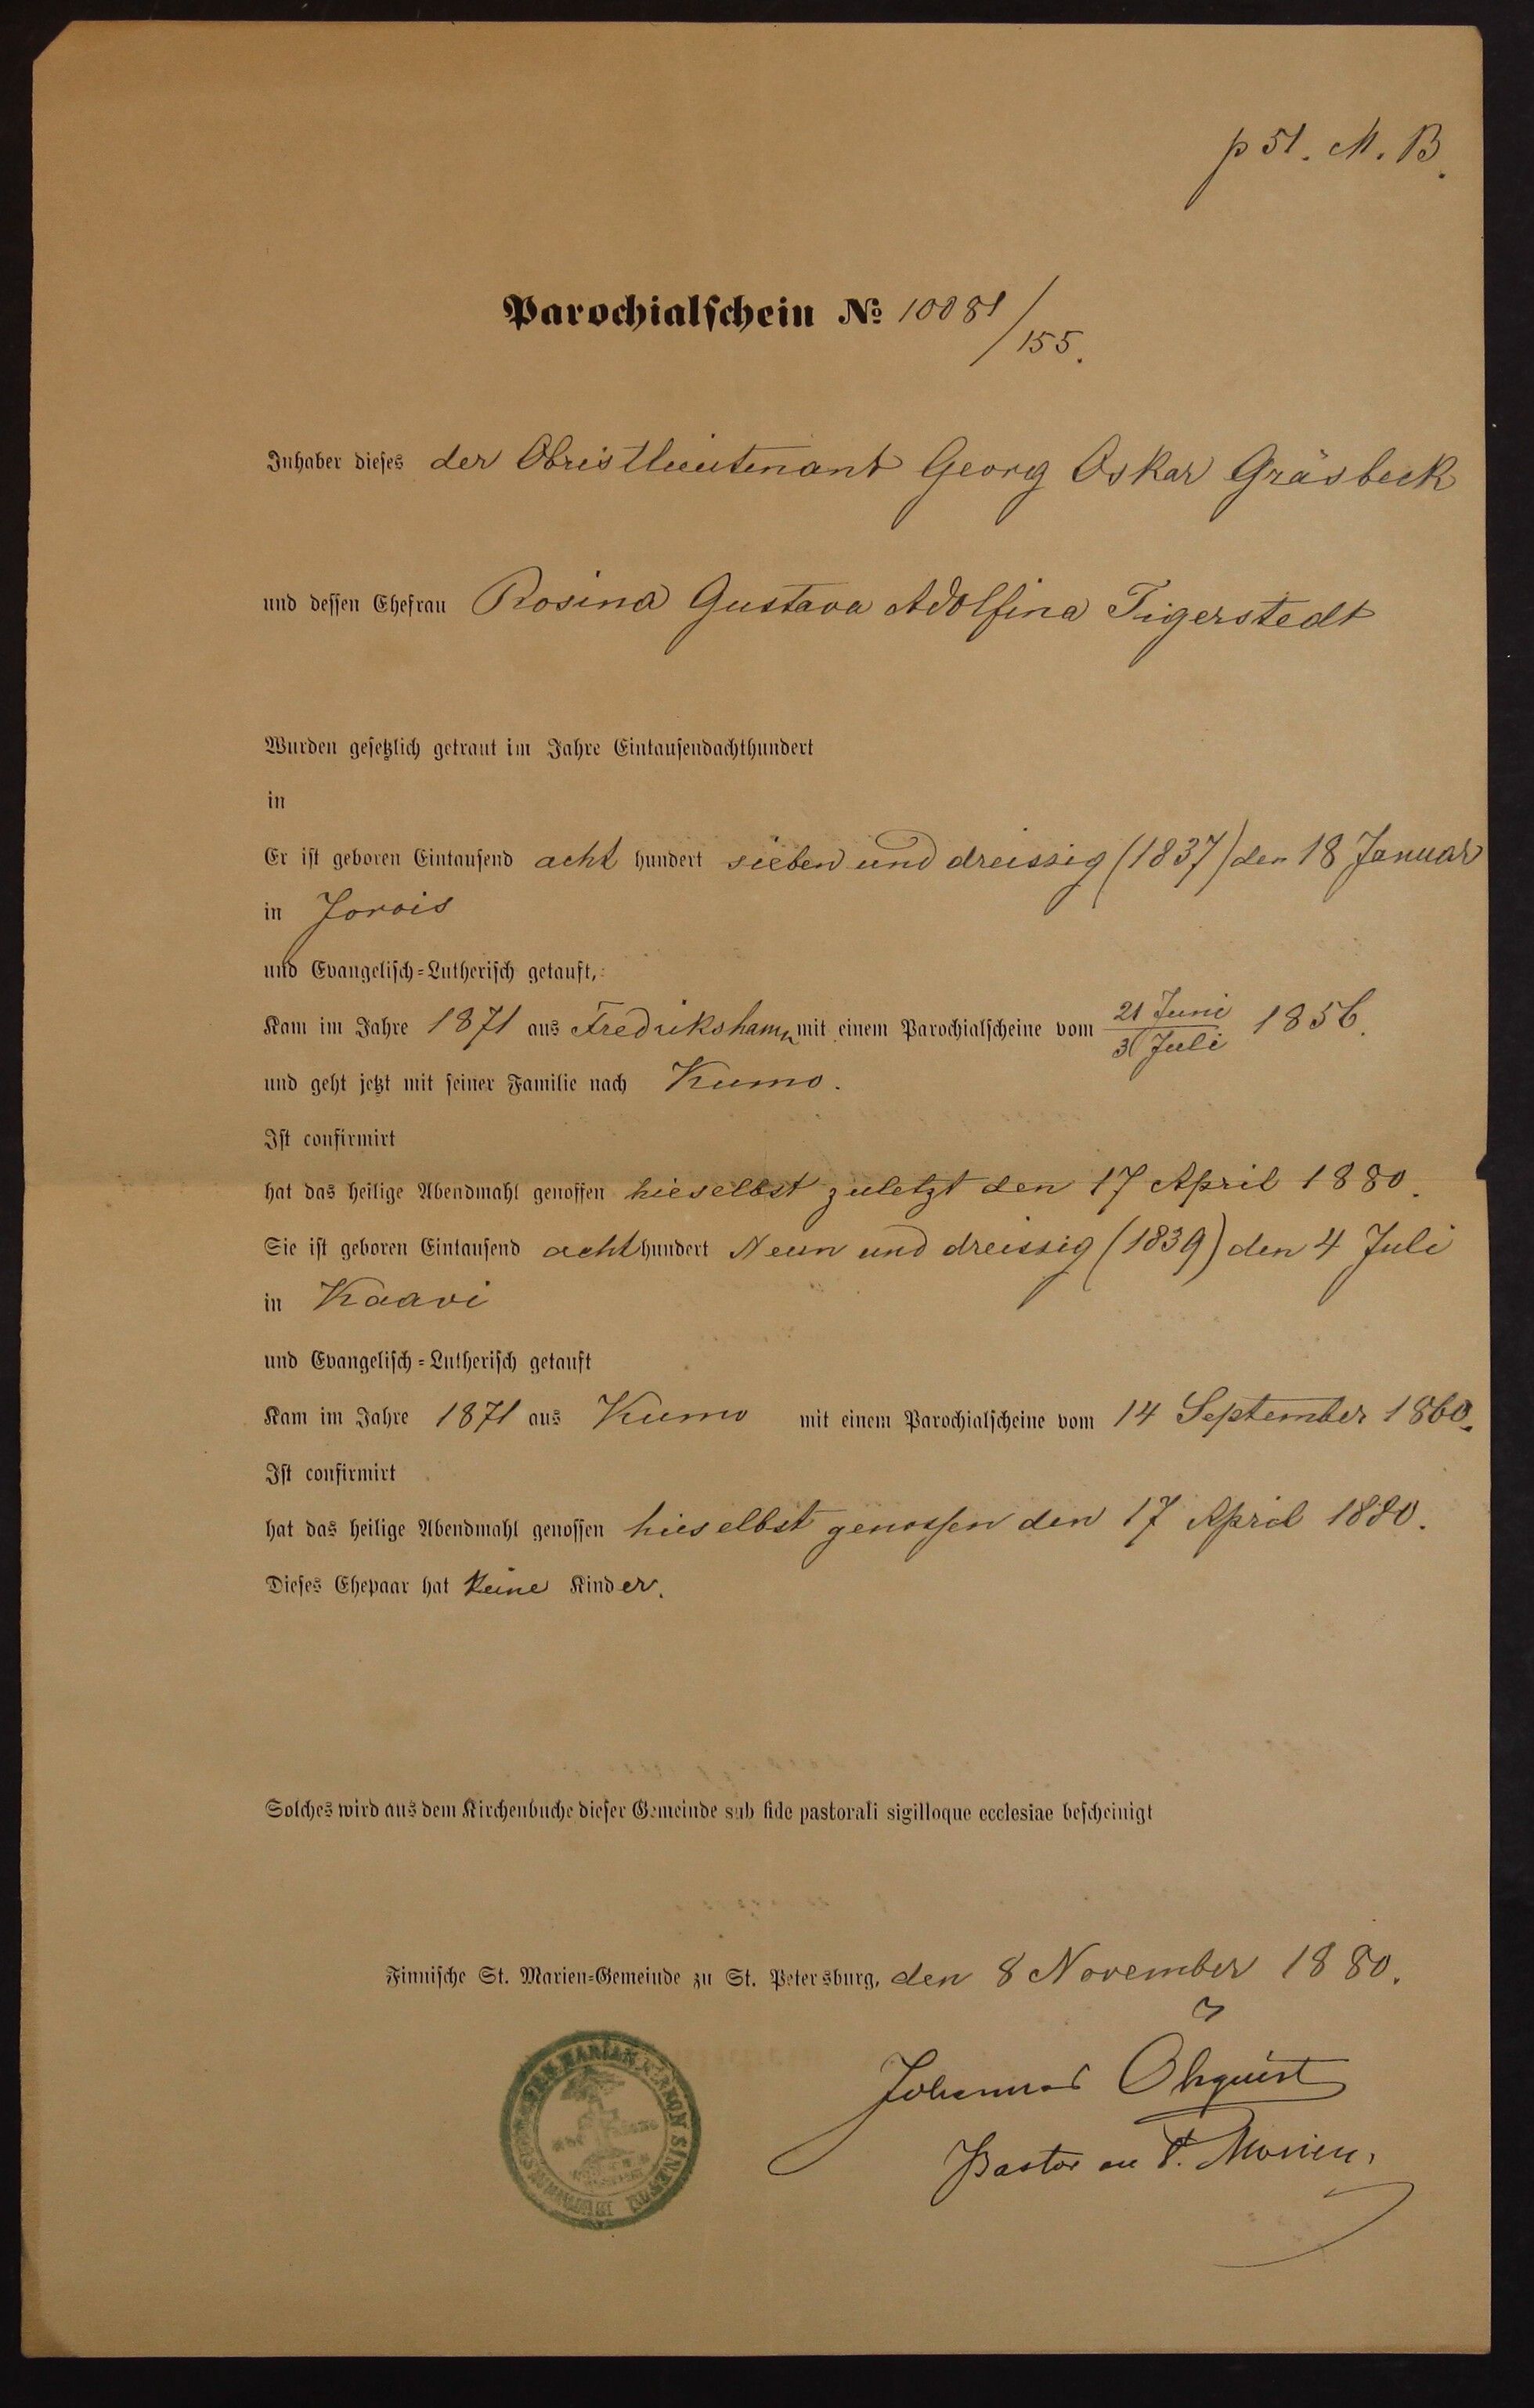 p 51. M. B.
Parochialschein № 10081/155.
Inhaber dieses der Obristlieutenant Georg Oskar Gräsbeck
und dessen Ehefrau Rosina Gustava Adolfina Tigerstedt
Wurden gesetzlich getraut im Jahre Eintausendachthundert
in
Er ist geboren Eintausend acht hundert sieben und dreissig (1837) den 18 Januar
in Jorois
und Evangelisch-Lutherisch getauft,
Kam im Jahre 1871 aus Fredrikshamn mit einem Parochialscheine vom 21 Juni / 3 Juli 1856.
und geht jetzt mit seiner Familie nach Kumo.
Ist confirmirt
hat das heilige Abendmahl genossen hieselbst zuletzt den 17 April 1880.
Sie ist geboren Eintausend acht hundert Neun und dreissig (1839) den 4 Juli
in Kaavi
und Evangelisch-Lutherisch getauft
Kam im Jahre 1871 aus Kumo mit einem Parochialscheine vom 14 September 1860.
Ist confirmirt
hat das heilige Abendmahl genossen hieselbst genossen den 17 April 1880.
Dieses Ehepaar hat keine Kinder.
Solches wird aus dem Kirchenbuche dieser Gemeinde sub fide pastorali sigilloque ecclesiae bescheinigt
Finnische St. Marien-Gemeinde zu St. Petersburg, den 8 November 1880.
Johannes Öhquist
Pastor an St. Marien.
MARIAN KIRKON SINETTI